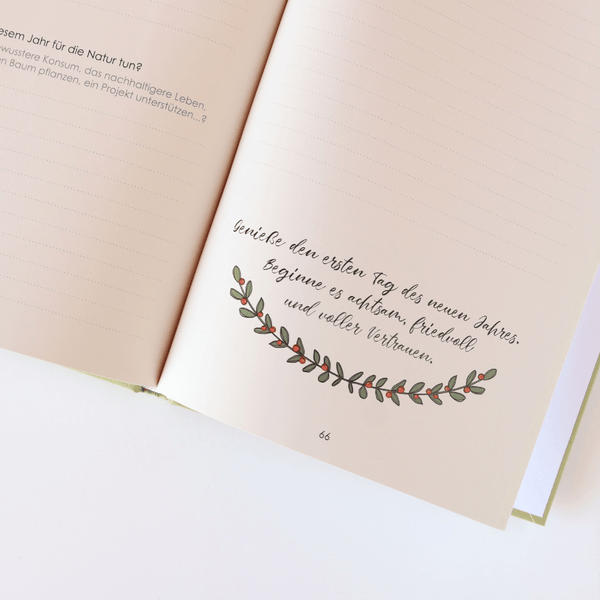 esem Jahr für die Natur tun?
wusstere Konsum, das nachhaltigere Leben,
n Baum pflanzen, ein Projekt unterstützen...?
Genieße den ersten Tag des neuen Jahres.
Beginne es achtsam, friedvoll
und voller Vertrauen.
66